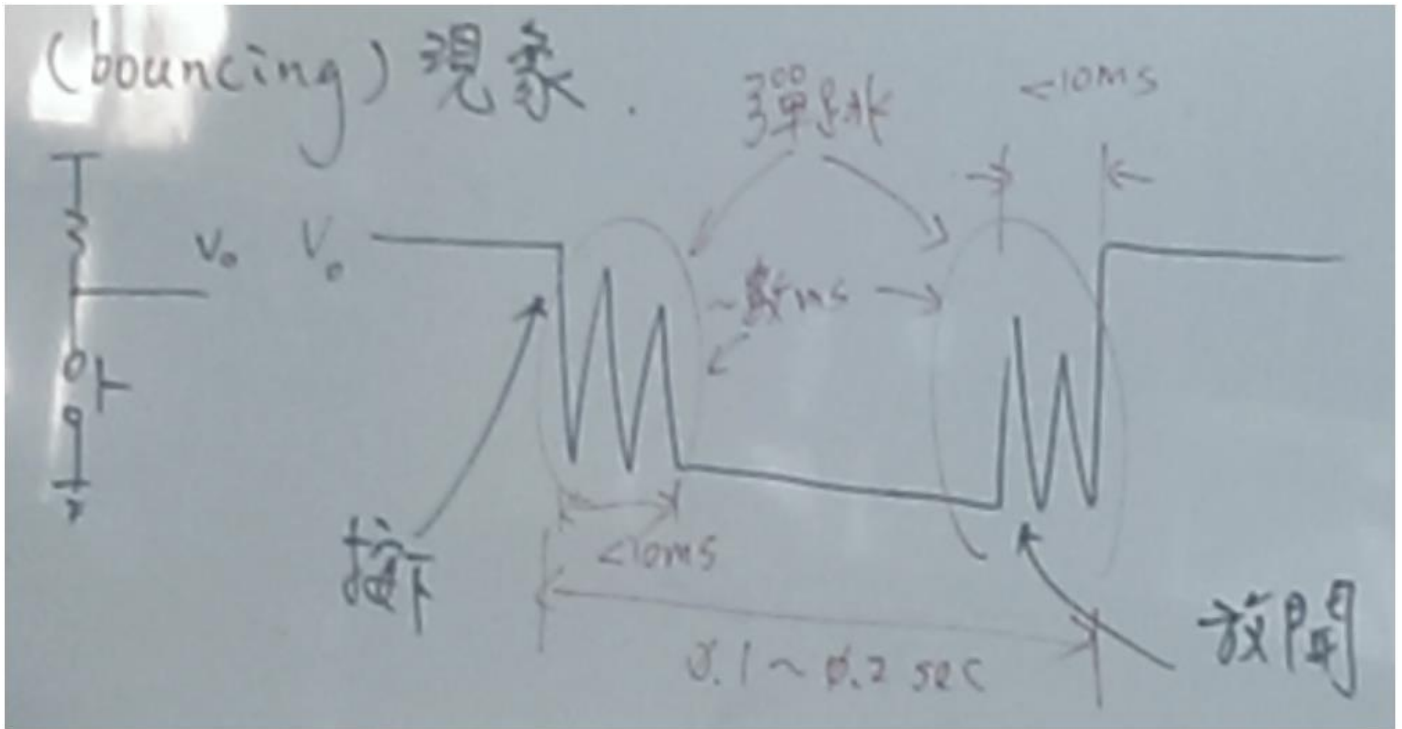 (bouncing) 現象.
彈跳
<10ms
V₀
V₀
~數ms
按下
<10ms
0.1~0.2 sec
放開